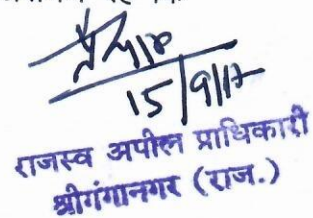 15/9/17
राजस्व अपील प्राधिकारी
श्रीगंगानगर (राज.)